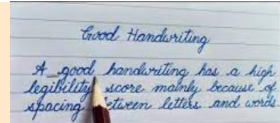 Good Handwriting
A good handwriting has a high
legibility score mainly because of
spacing between letters and words